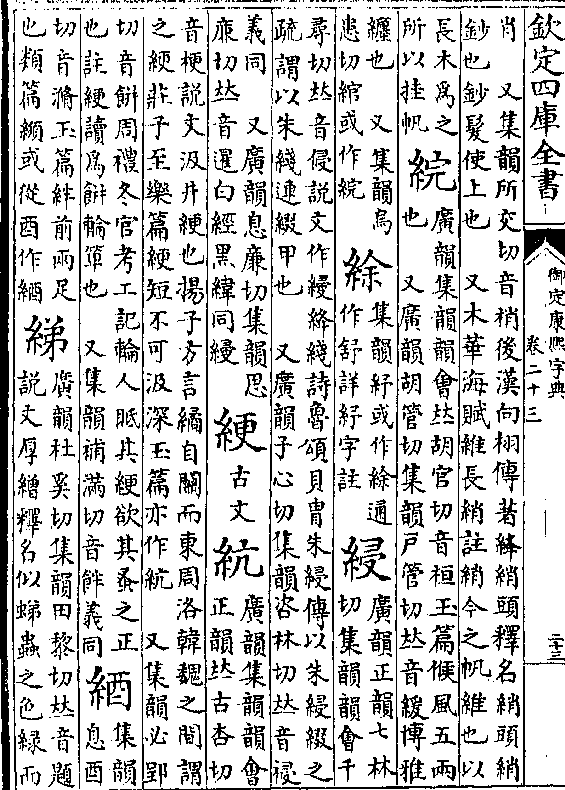 欽定四庫全書
御定康熙字典
卷二十三
二十三
肖 又集韻所交切音稍後漢向栩傳著絳綃頭釋名綃頭綃
鈔也鈔髮使上也 又木華海賦維長綃註綃今之帆維也以
長木爲之
所以挂帆 綄 廣韻集韻韻會𠀤胡官切音桓玉篇候風五兩
也 又廣韻胡管切集韻戸管切𠀤音緩博雅
纏也 又集韻烏
患切綰或作綄 絵
集韻紓或作絵通
作舒詳紓字註 綅 廣韻正韻七林
切集韻韻會千
尋切𠀤音侵説文作綅絳綫詩魯頌貝胄朱綅傳以朱綅綴之
疏謂以朱綫連綴甲也 又廣韻子心切集韻咨林切𠀤音祲
義同 又廣韻息廉切集韻思
廉切𠀤音暹白經黑緯同綅 綆 古文 䋁 廣韻集韻韻會
正韻𠀤古杏切
音梗説文汲井綆也揚子方言繘自關而東周洛韓魏之間謂
之綆莊子至樂篇綆短不可汲深玉篇亦作䋁 又集韻必郢
切音餠周禮冬官考工記輪人眡其綆欲其蚤之正
也註綆讀爲餠輪箄也 又集韻補滿切音䉽義同 綇 集韻
息酉
切音滫玉篇絆前兩足
也類篇𦆑或從酉作綇 綈 廣韻杜奚切集韻田黎切𠀤音題
説文厚繒釋名似蝭蟲之色緑而